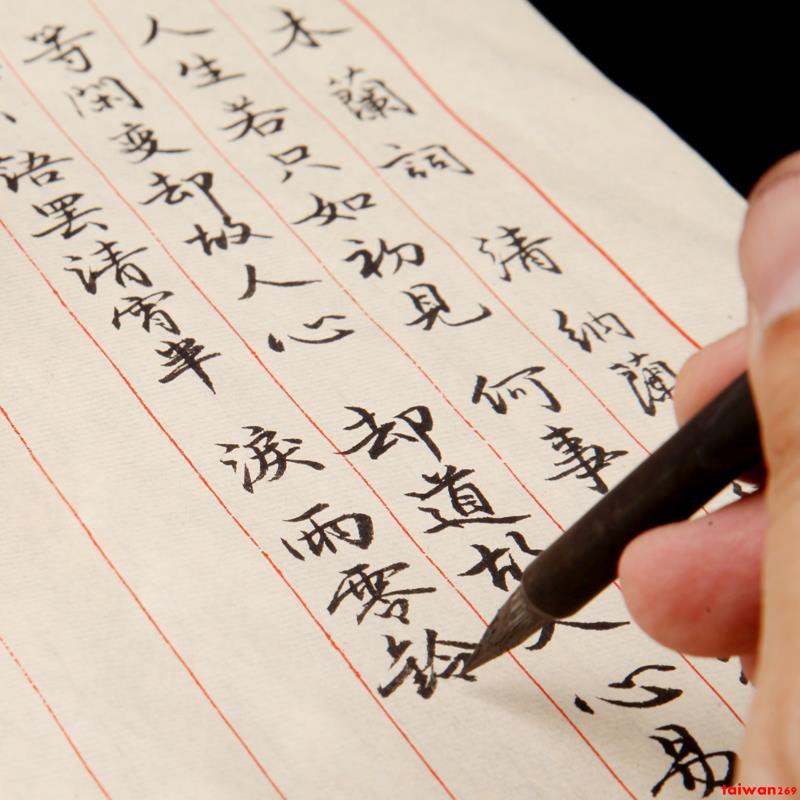 木蘭詞 清 納蘭
人生若只如初見 何事
等閑变却故人心 却道故人心易
语罢清宵半 淚雨零鈴
taiwan269